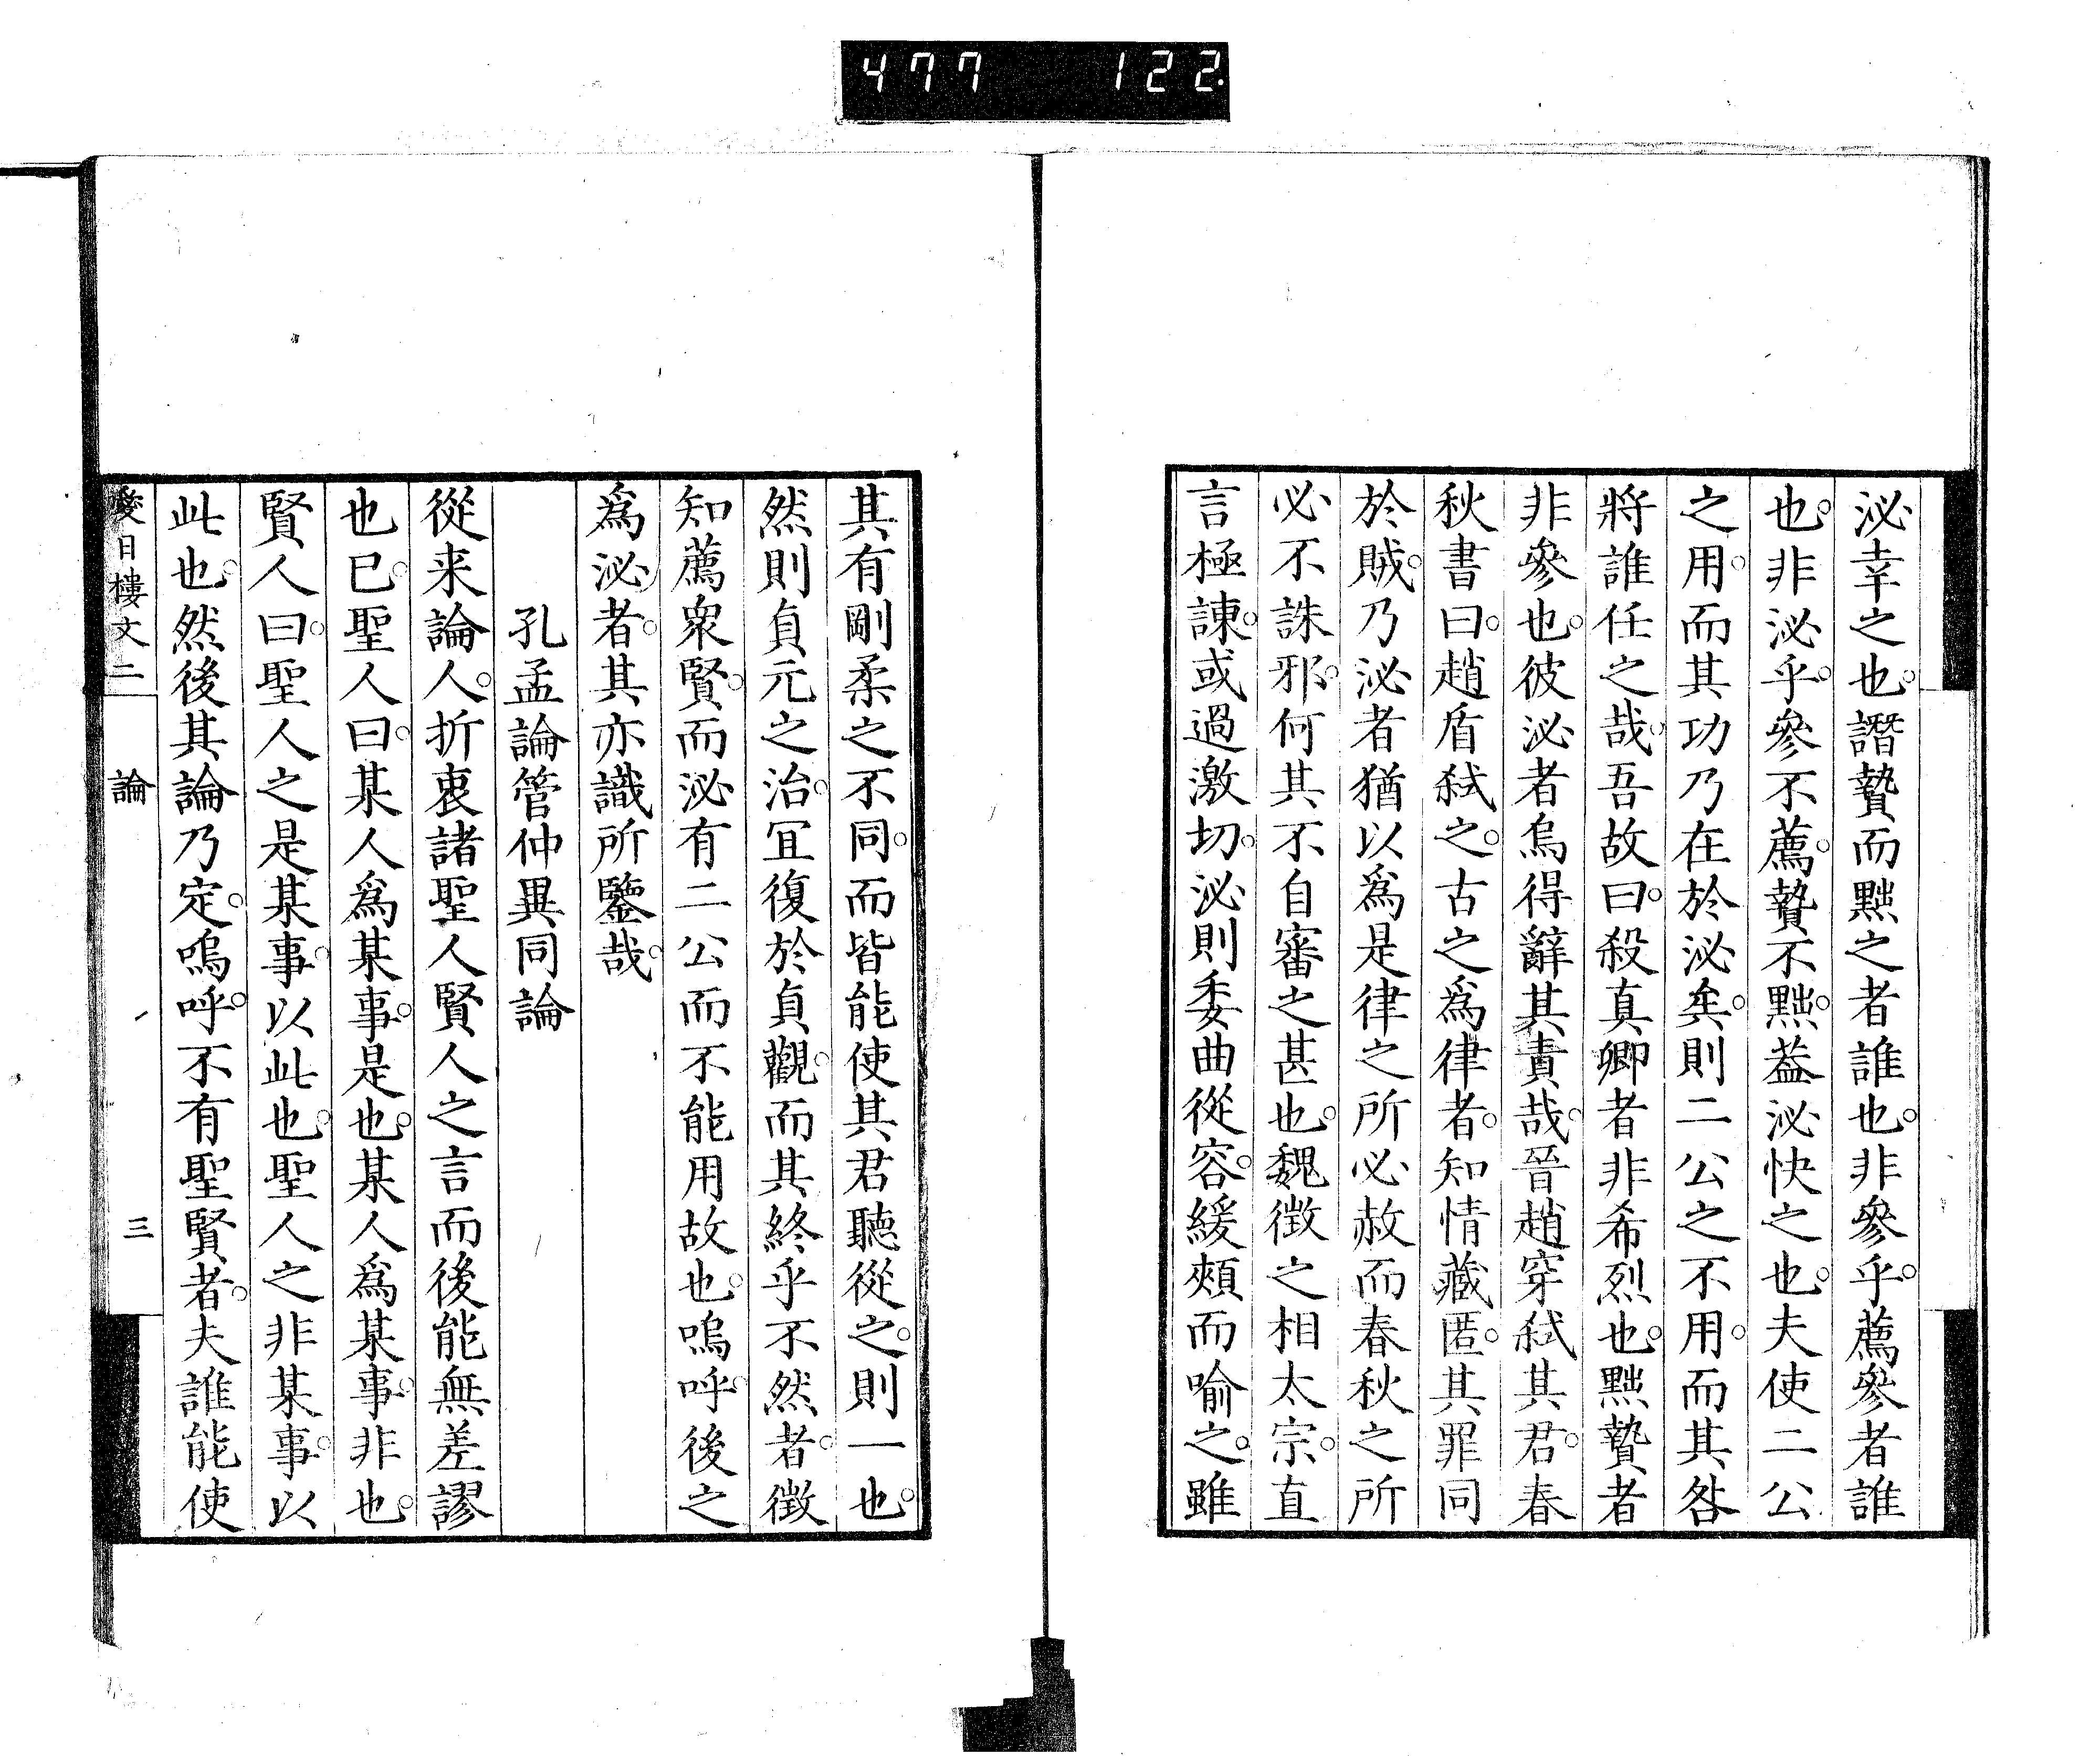 477 122.
泌幸之也。譖贄而黜之者誰也。非參乎。薦參者誰
也。非泌乎。參不薦。贄不黜。葢泌快之也。夫使二公
之用。而其功乃在於泌矣。則二公之不用。而其咎
將誰任之哉。吾故曰。殺真卿者非希烈也。黜贄者
非參也。彼泌者烏得辭其責哉。晉趙穿弒其君。春
秋書曰。趙盾弒之。古之爲律者。知情藏匿。其罪同
於賊。乃泌者猶以爲是律之所必赦而春秋之所
必不誅邪。何其不自審之甚也。魏徵之相太宗。直
言極諫。或過激切。泌則委曲從容。緩頰而喻之。雖
其有剛柔之不同。而皆能使其君聽從之。則一也。
然則貞元之治。宜復於貞觀。而其終乎不然者。徵
知薦衆賢。而泌有二公而不能用故也。嗚呼。後之
爲泌者。其亦識所鑒哉。
孔孟論管仲異同論
從来論人。折衷諸聖人賢人之言而後能無差謬
也已。聖人曰。某人爲某事。是也。某人爲某事。非也。
賢人曰。聖人之是某事。以此也。聖人之非某事。以
此也。然後其論乃定。嗚呼。不有聖賢者。夫誰能使
日樓文二 論 三